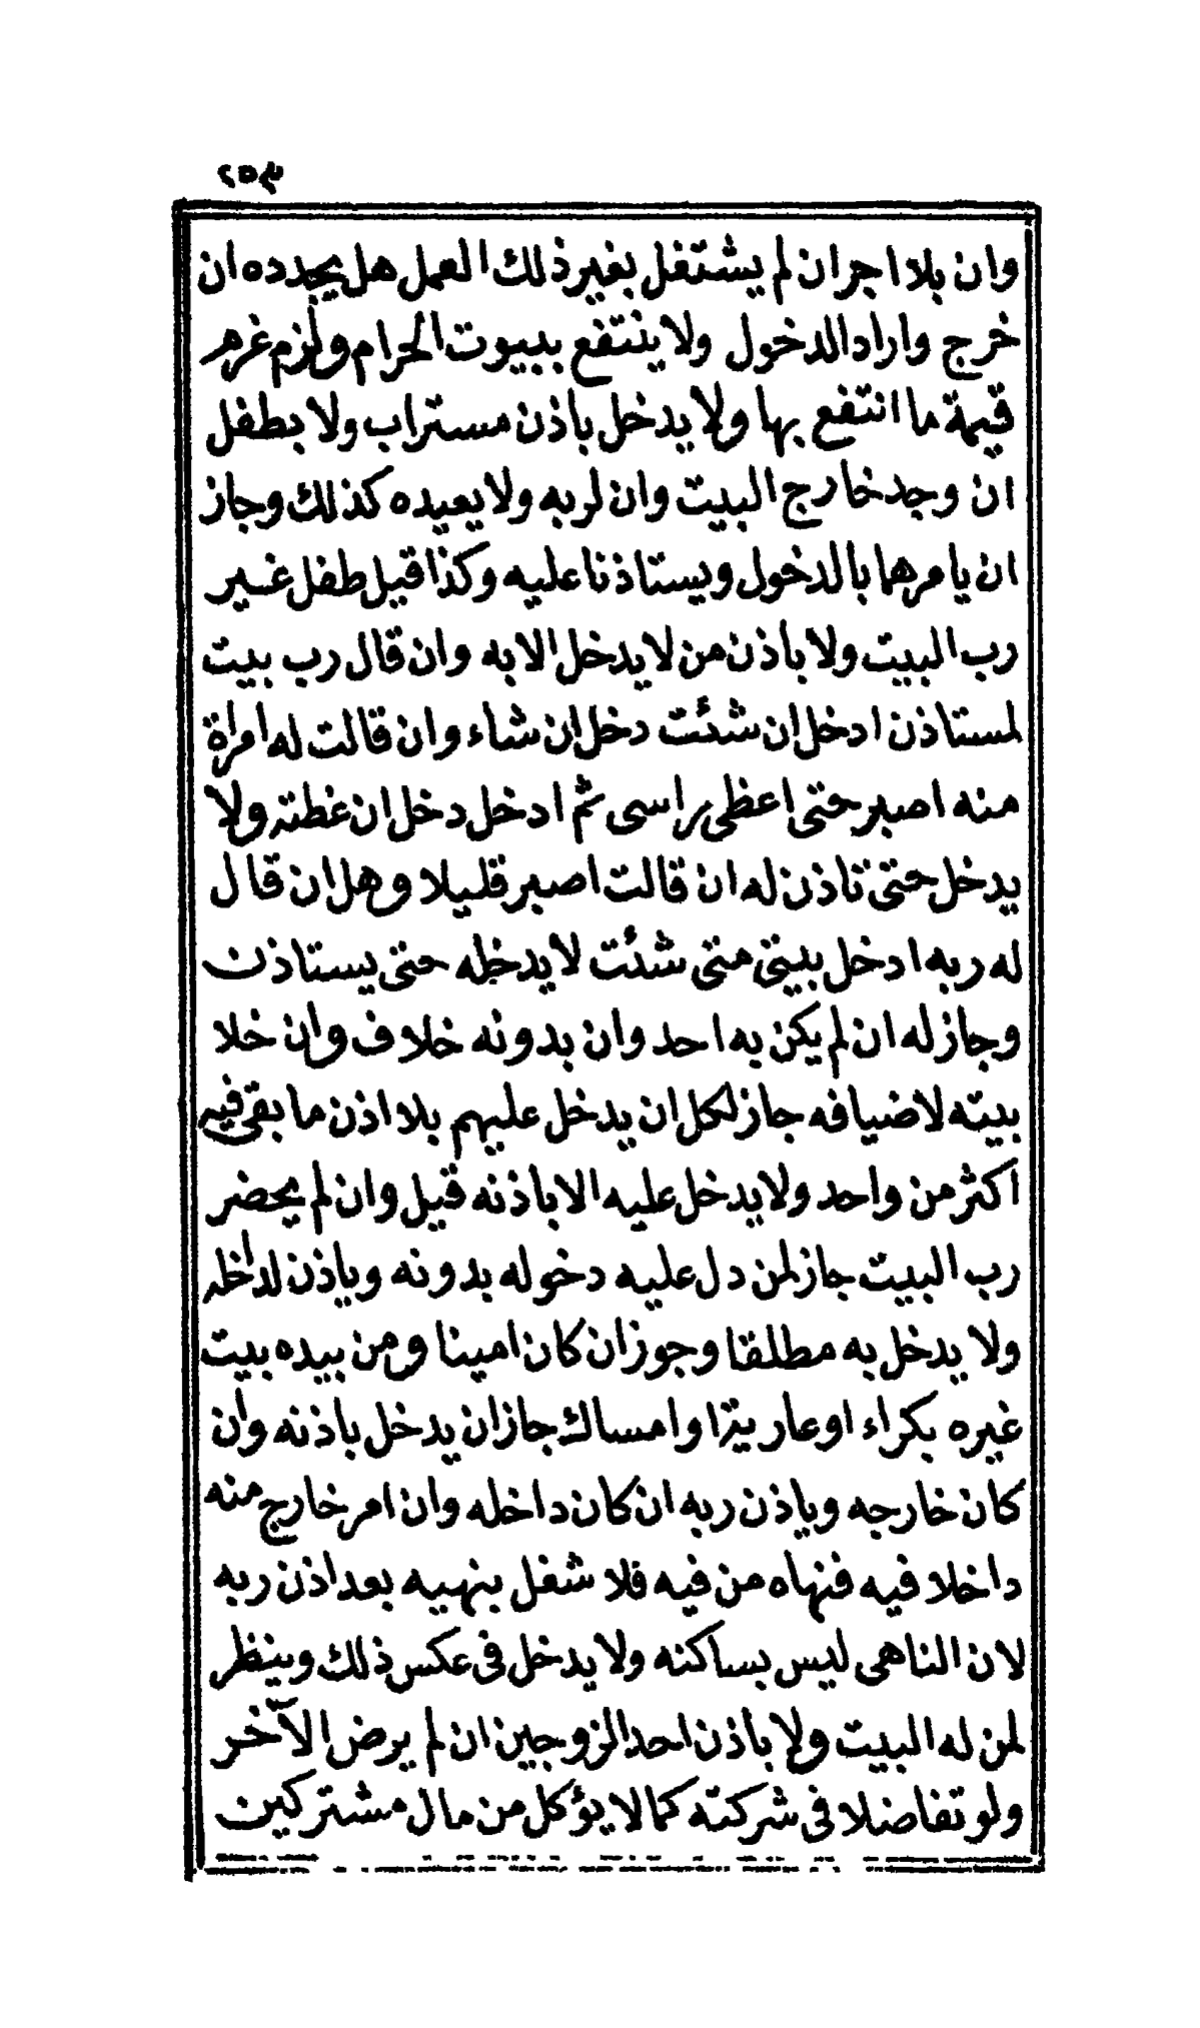 ٢٥٣
وان بلا اجران لم يشتغل بغير ذلك العمل هل يجدده ان
خرج واراد الدخول ولا ينتفع ببيوت الحرام ولزم غرم
قيمة ما انتفع بها ولا يدخل باذن مستراب ولا بطفل
ان وجد خارج البيت وان لربه ولا يعيده كذلك وجاز
ان يامرهما بالدخول ويستاذنا عليه وكذا قيل طفل غير
رب البيت ولا باذن من لا يدخل الا به وان قال رب بيت
لمستاذن ادخل ان شئت دخل ان شاء وان قالت له امراة
منه اصبر حتى اغطي راسى ثم ادخل دخل ان غطته ولا
يدخل حتى تاذن له ان قالت اصبر قليلا وهل ان قال
له ربه ادخل بيتى متى شئت لا يدخله حتى يستاذن
وجاز له ان لم يكن به احد وان بدونه خلاف وان خلا
بيته لاضيافه جاز لكل ان يدخل عليهم بلا اذن ما بقى فيه
اكثر من واحد ولا يدخل عليه الا باذنه قيل وان لم يحضر
رب البيت جاز لمن دل عليه دخوله بدونه وياذن لداخله
ولا يدخل به مطلقا وجوز ان كان امينا ومن بيده بيت
غيره بكراء او عاريتا وامساك جاز ان يدخل باذنه وان
كان خارجه وياذن ربه ان كان داخله وان امر خارج منه
داخلا فيه فنهاه من فيه فلا شغل بنهيه بعد اذن ربه
لان الناهى ليس بساكنه ولا يدخل فى عكس ذلك وينظر
لمن له البيت ولا باذن احد الزوجين ان لم يرض الآخر
ولو تفاضلا فى شركته كما لا يؤكل من مال مشتركين